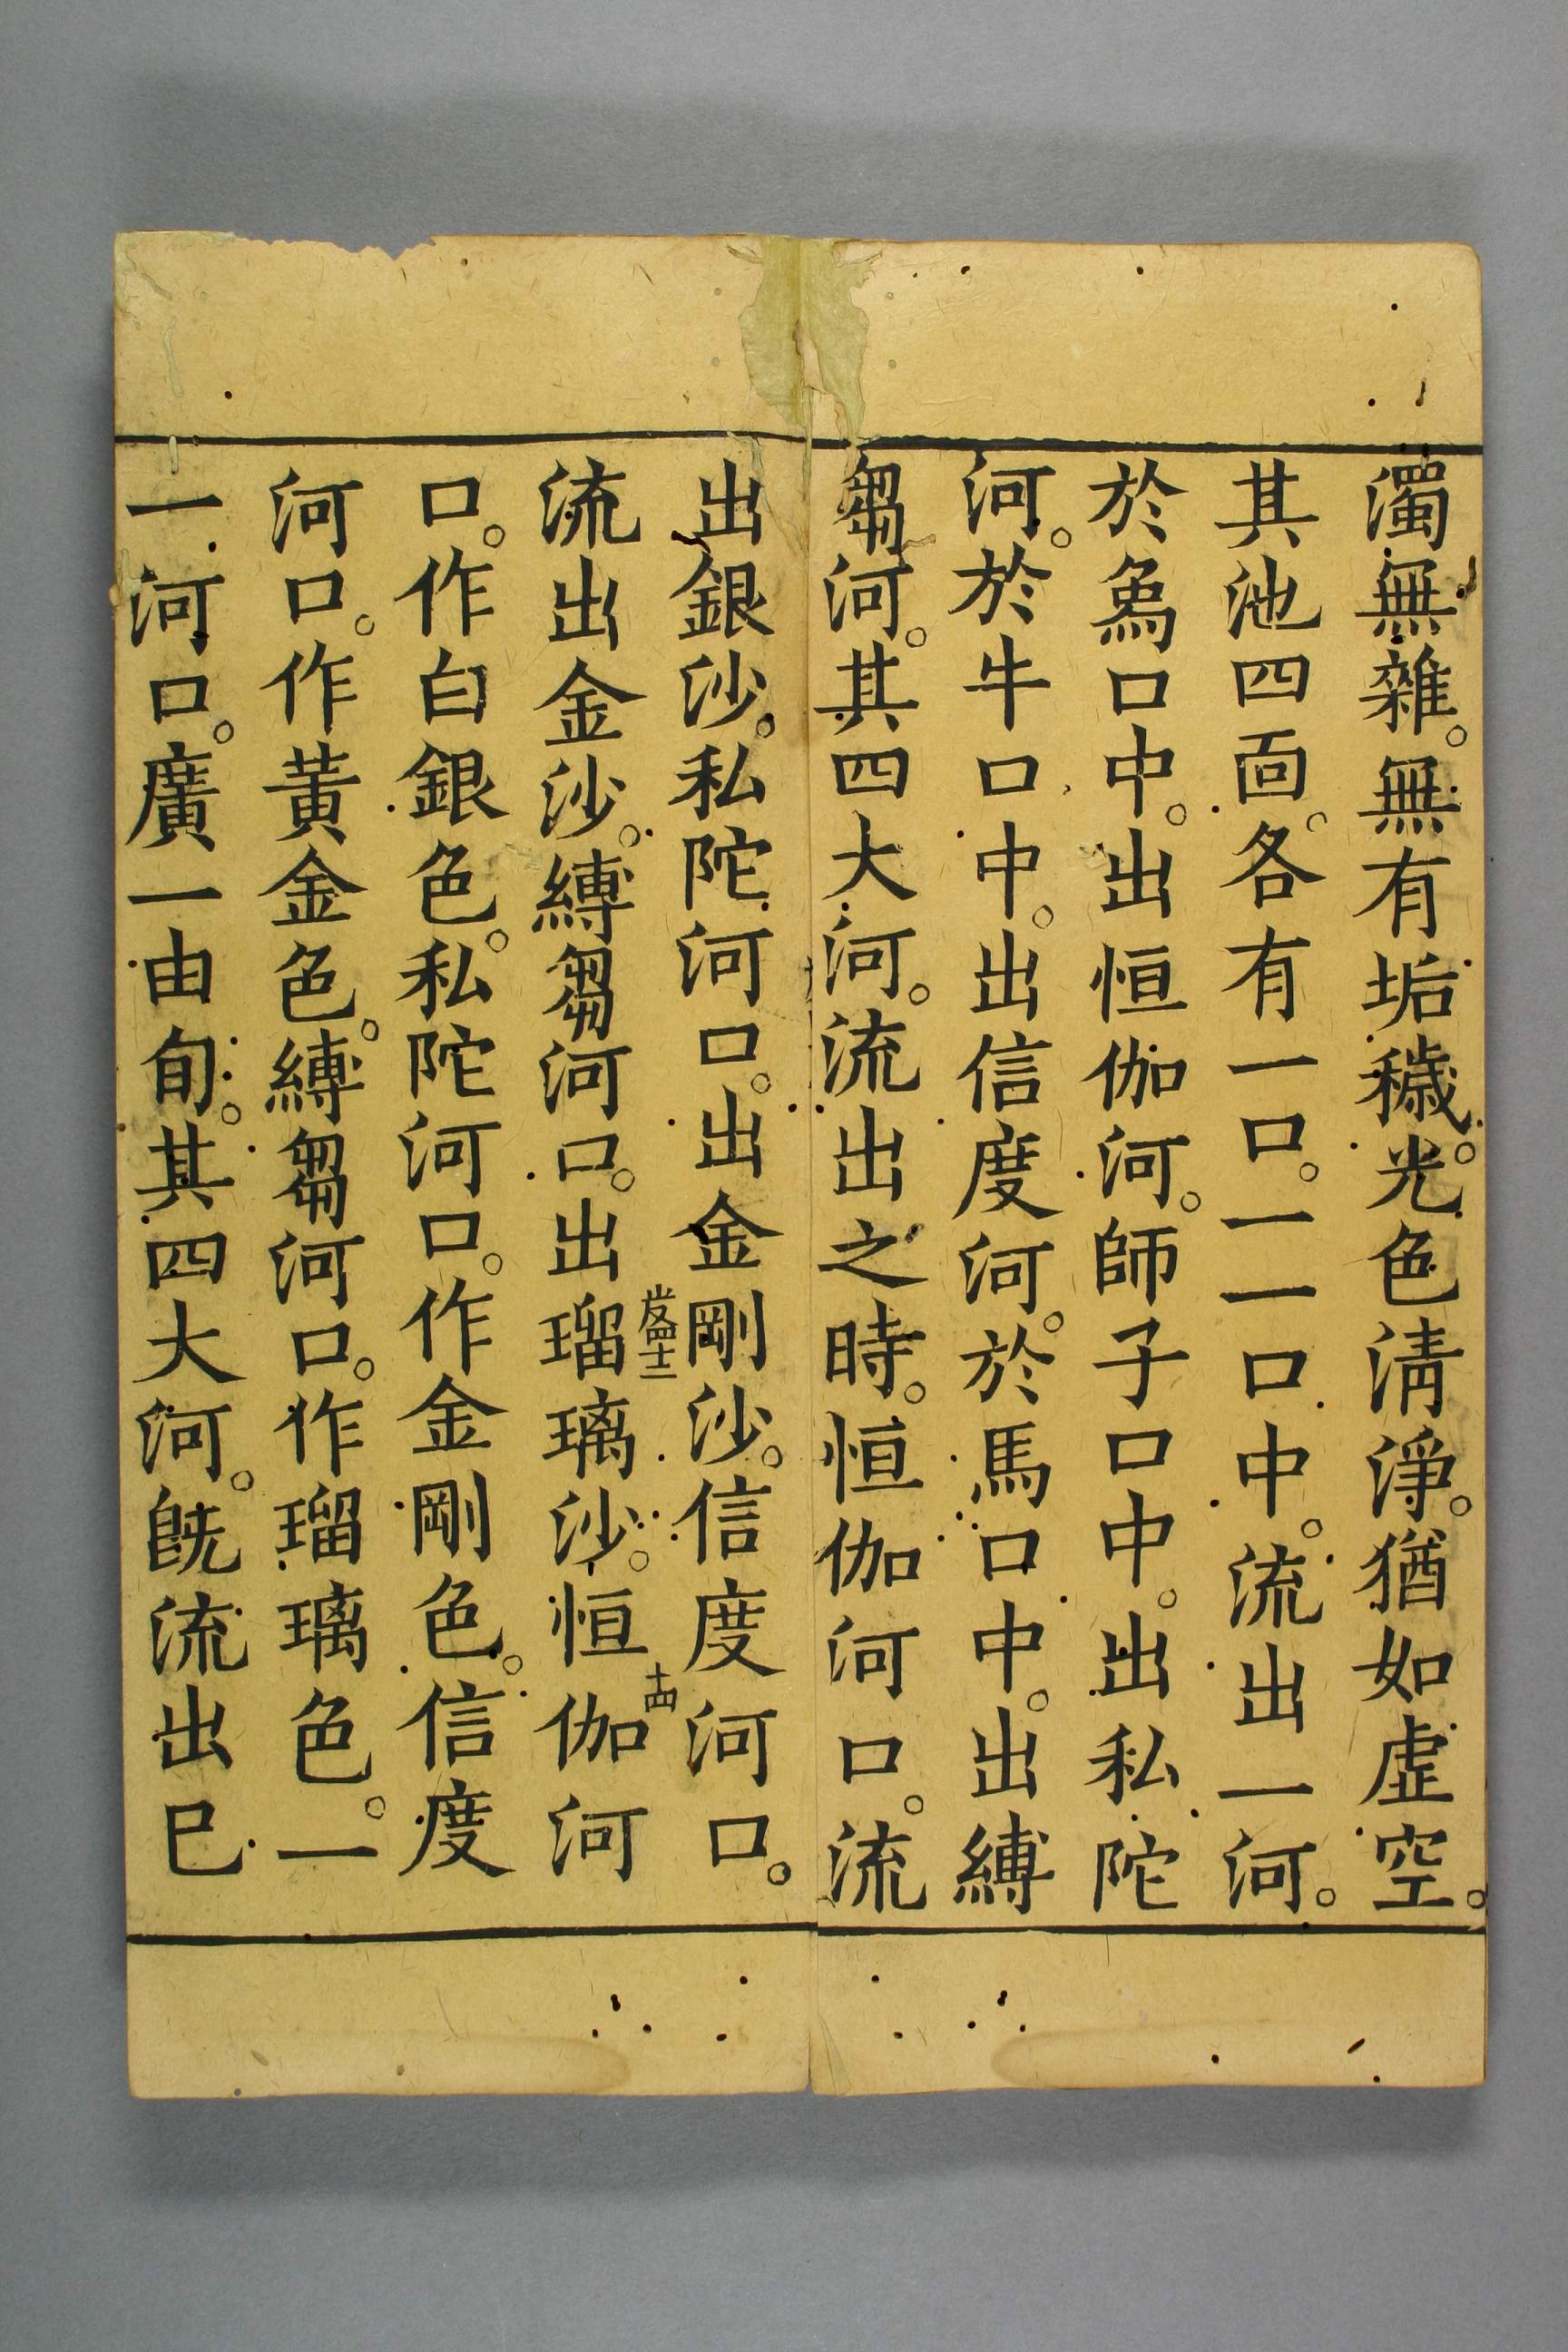 濁無雜。無有垢穢。光色淸淨。猶如虛空。
其池四面。各有一口。一一口中。流出一河。
於象口中。出恒伽河。師子口中。出私陀
河。於牛口中。出信度河。於馬口中。出縛
芻河。其四大河。流出之時。恒伽河口。流
出銀沙。私陀河口。出金剛沙。信度河口。
流出金沙。縛芻河口。出瑠璃沙。恒伽河
口。作白銀色。私陀河口。作金剛色。信度
河口。作黃金色。縛芻河口。作瑠璃色。一
一河口。廣一由旬。其四大河。旣流出已